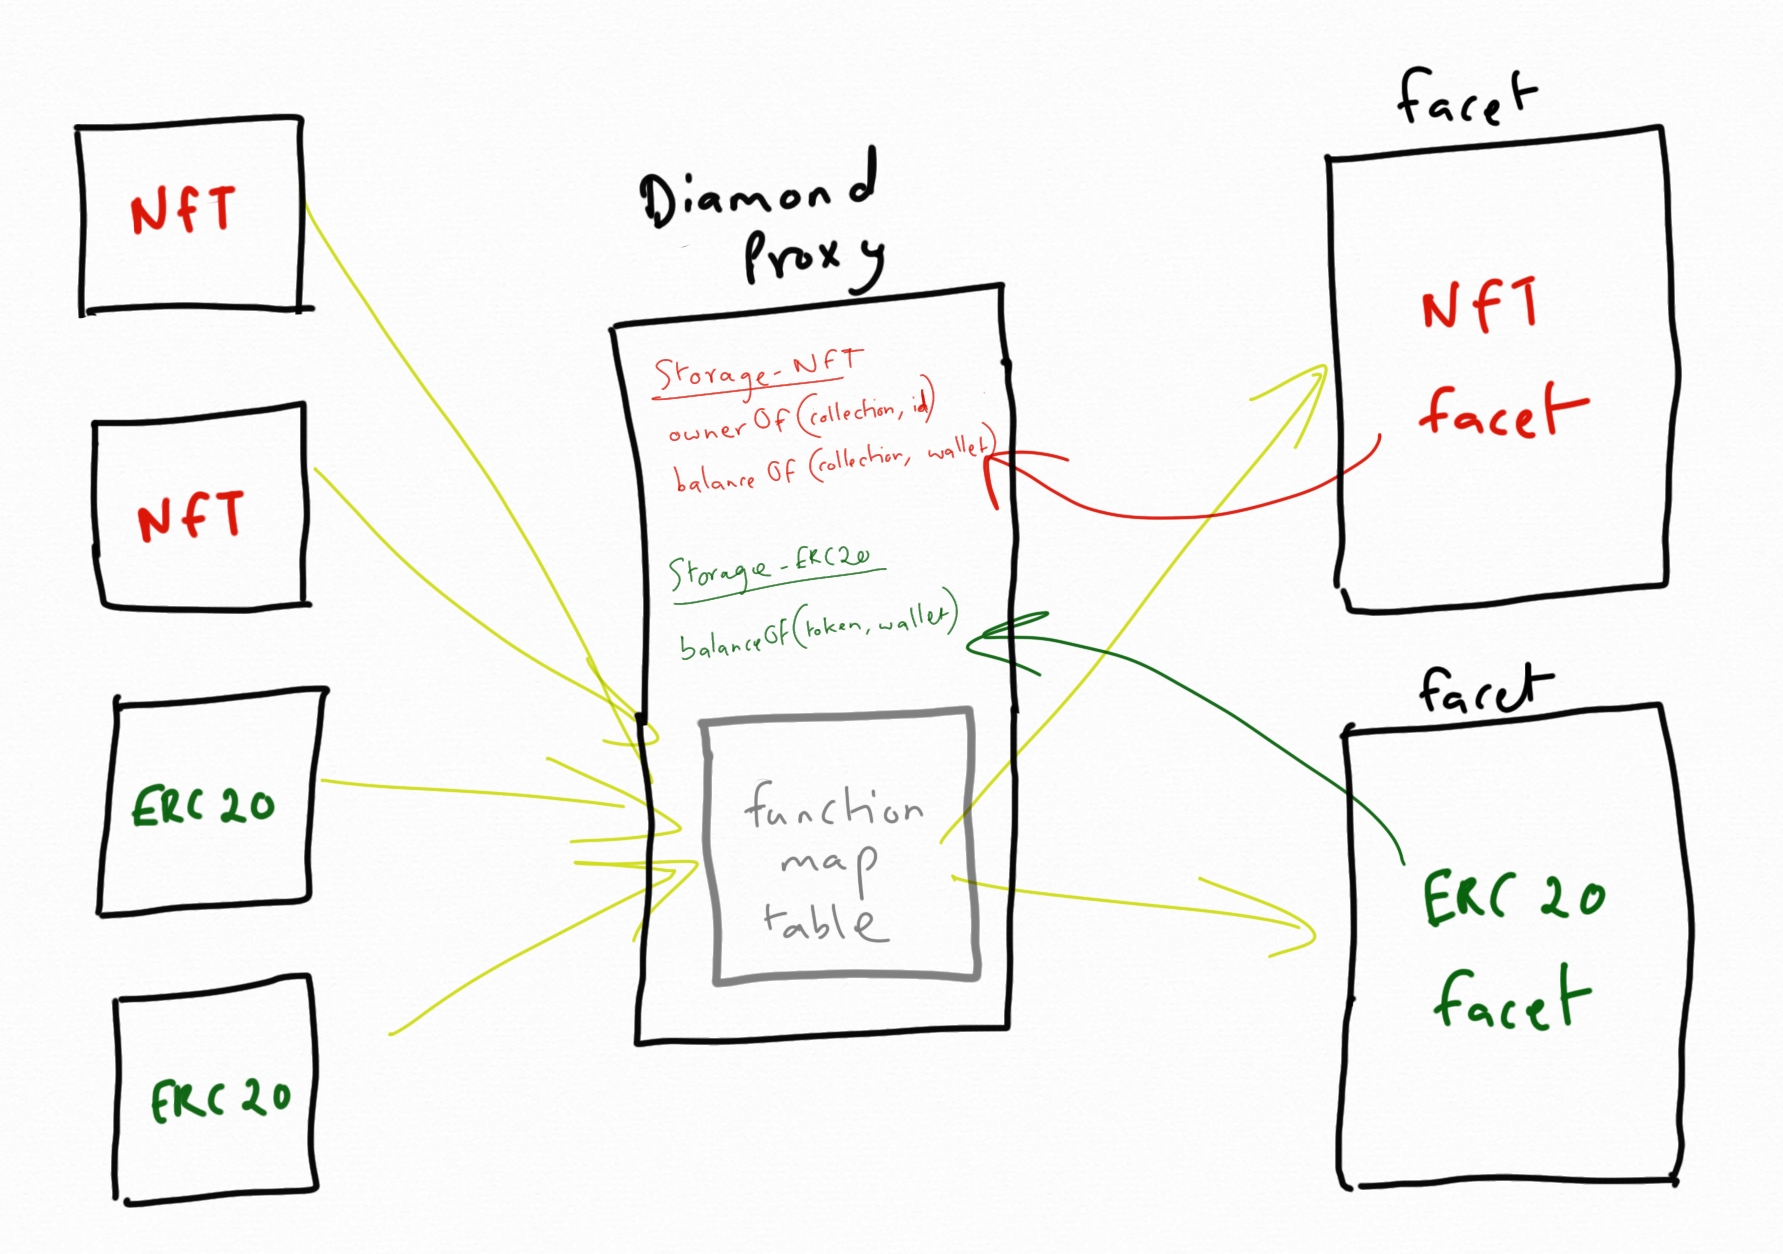 NFT
NFT
ERC20
ERC20
Diamond
Proxy
Storage-NFT
ownerOf(collection, id)
balanceOf(collection, wallet)
Storage-ERC20
balanceOf(token, wallet)
function
map
table
facet
NFT
facet
facet
ERC20
facet